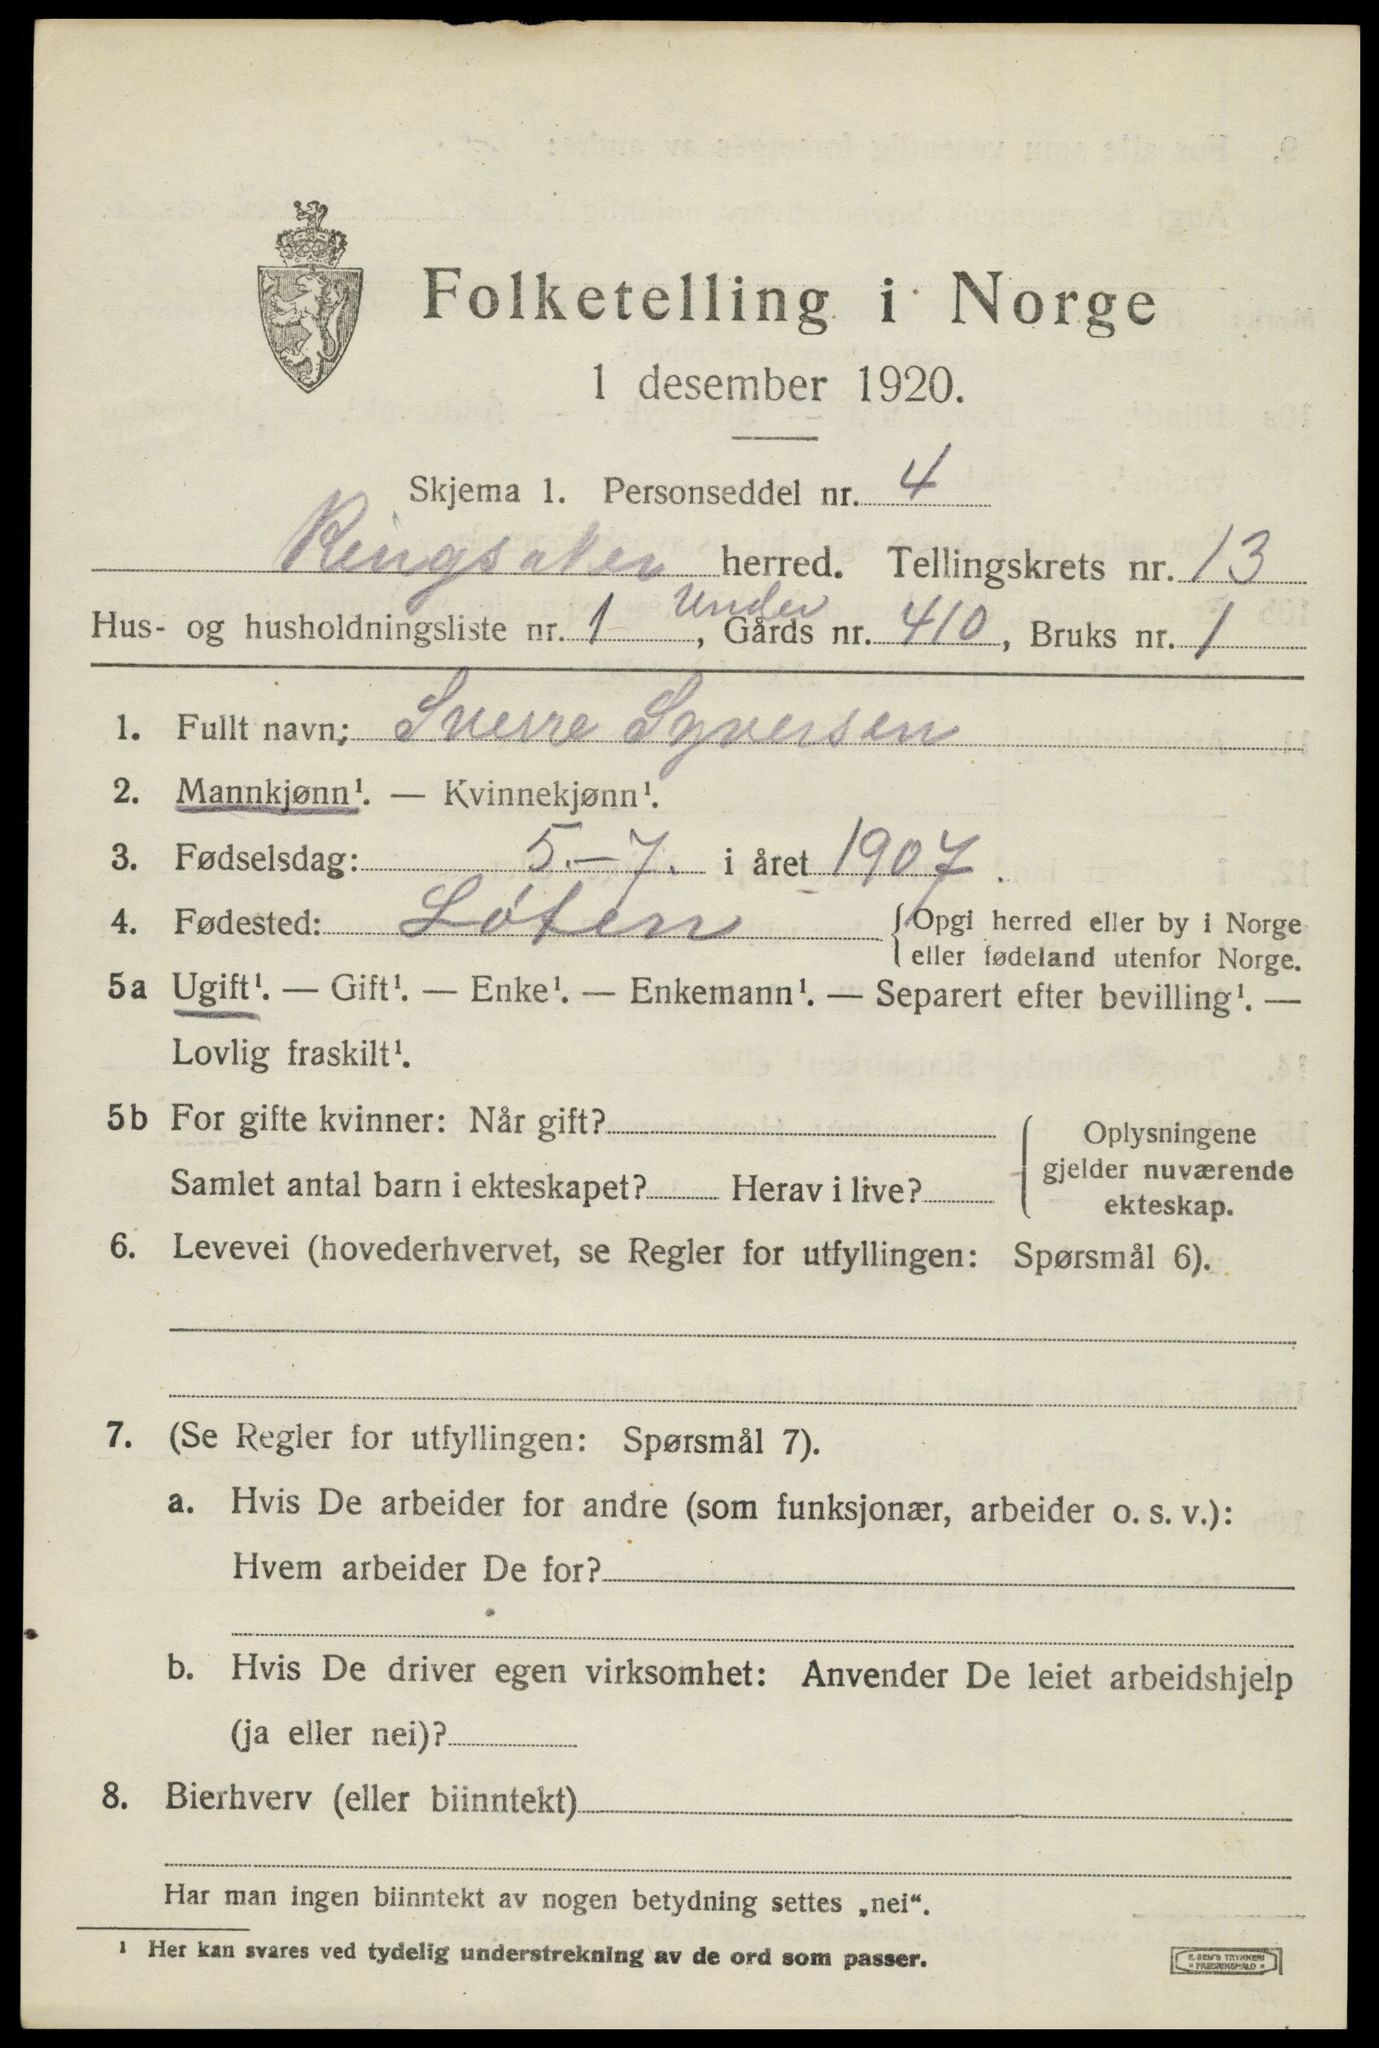 Folketelling i Norge
1 desember 1920.
Skjema 1. Personseddel nr. 4
Ringsaker herred. Tellingskrets nr. 13
Hus- og husholdningsliste nr. 1, Under Gårds nr. 410, Bruks nr. 1
1. Fullt navn: Sverre Syversen
2. Mannkjønn¹. — Kvinnekjønn¹.
3. Fødselsdag: 5.-7. i året 1907.
4. Fødested: Løten {Opgi herred eller by i Norge
eller fødeland utenfor Norge.
5a Ugift¹. — Gift¹. — Enke¹. — Enkemann¹. — Separert efter bevilling¹. —
Lovlig fraskilt¹.
5b For gifte kvinner: Når gift?
Samlet antal barn i ekteskapet? Herav i live?
Oplysningene
gjelder nuværende
ekteskap.
6. Levevei (hovederhvervet, se Regler for utfyllingen: Spørsmål 6).
7. (Se Regler for utfyllingen: Spørsmål 7).
a. Hvis De arbeider for andre (som funksjonær, arbeider o. s. v.):
Hvem arbeider De for?
b. Hvis De driver egen virksomhet: Anvender De leiet arbeidshjelp
(ja eller nei)?
8. Bierhverv (eller biinntekt)
Har man ingen biinntekt av nogen betydning settes „nei“.
¹ Her kan svares ved tydelig understrekning av de ord som passer.
E. SEM'S TRYKKERI
• FREDRIKSHALD •